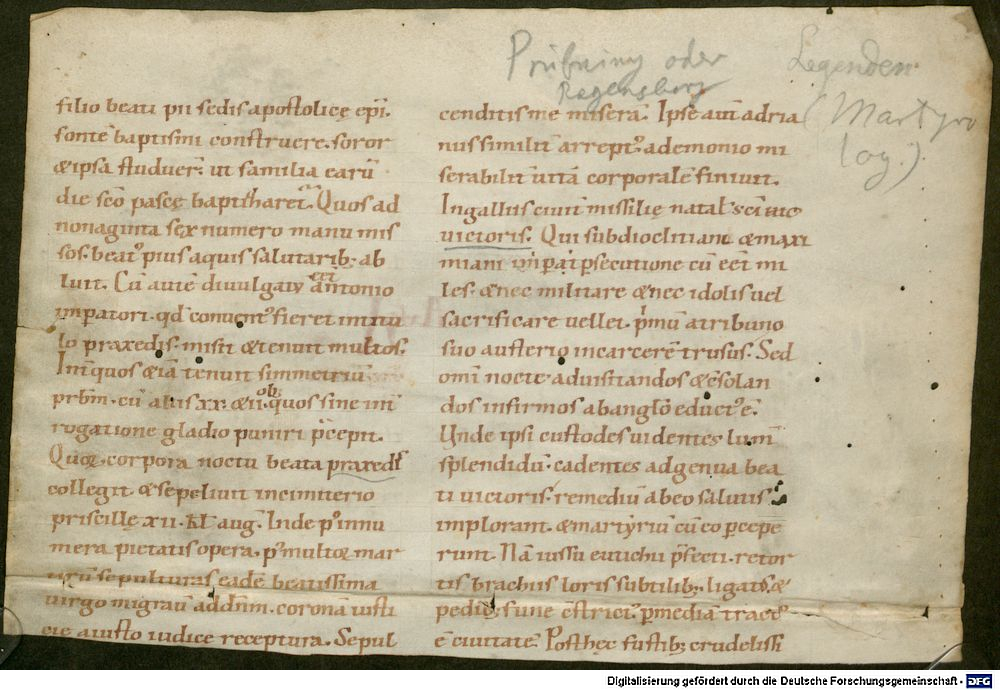 Prüfening oder
Regensburg
Legenden
(Martyro
log.)
filio beati pii sedis apostolicę ep̄i.
fontē baptismi construere. soror
& ipsa studuer̄. ut familia earū
die sc̄o pascę baptizaret̄. Quos ad
nonaginta sex numero manu mis
sos. beat᷒ pius aquis salutarib; ab
luit. Cū autē divulgatū eēt antonio
imperatori. qd̄ convent᷒ fieret in titu
lo praxedis. misit & tenuit multos.
Int̄ quos & iā tenuit simmetriū
prb̄m. cū aliis xx. & ii. ob quos sine int̄
rogatione gladio puniri p̄cepit.
Quoꝝ corpora noctu beata praxedis
collegit. & sepelivit in cimiterio
priscillę xii. kl̄ aug̅. Inde p᷒ innu
mera pietatis opera. p᷒ multoꝝ mar
tyrū sepulturas eadē beatissima
virgo migravit ad dn̄m. coronā iusti
cię a iusto iudice receptura. Sepul
cenditis me miserā. Ipse aut̄ adria
nus similit̄ arrept᷒ a demonio mi
serabilit̄ vitā corporalē finivit.
In galliis civit̄ missilię natal̄ sc̄i
victoris. Qui sub diocletiani & maxi
miani imperat̄ persecutione cū eēt mi
les. & nec militare & nec idolis vel
sacrificare vellet. p̄mū a tribuno
suo austerio in carcerē trusus. Sed
om̄i nocte ad visitandos & c̄solan
dos infirmos ab anglō educt᷒ ē.
Unde ipsi custodes videntes lum̄
splendidū. cadentes ad genua bea
ti victoris. remediū ab eo salutis
implorant. & martyriū cū eo percepe
runt. Nā iussu eutichii p̄fecti. retor
tis brachiis loris subtilib; ligatis. &
pedib; fune c̄strict᷒. per mediā tract᷒
ē civitatē. Post hęc fustib; crudelissi
Digitalisierung gefördert durch die Deutsche Forschungsgemeinschaft - DFG